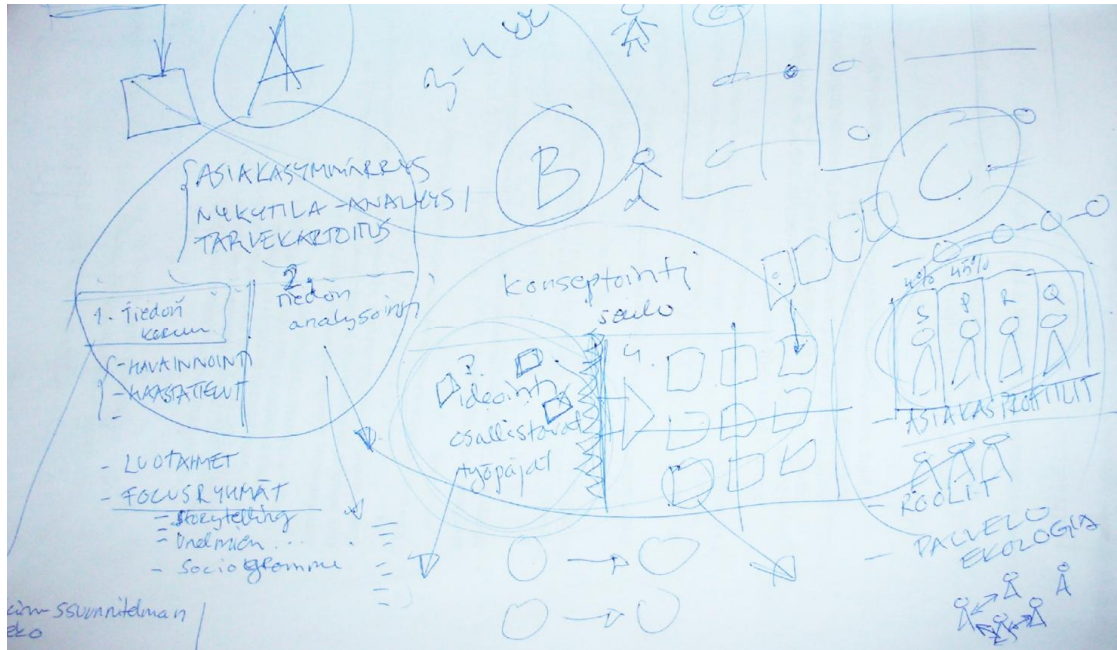 A
3-4 kk
B
C
ASIAKASYMMÄRRYS
NYKYTILA-ANALYYSI
TARVEKARTOITUS
1. Tiedon
keruu
2.
Tiedon
analysointi
- HAVAINNOINTI
- HAASTATTELUT
-
- LUOTAIMET
- FOCUSRYHMÄT
- Storytelling
- Unelmien ....
- Sociogrammi
konseptointi
seulo
3.
ideointi
osallistavat
työpajat
4.
4% 45%
S P R Q
- ASIAKASPROFIILIT
- ROOLIT
- PALVELO
EKOLOGIA
ssuunnitelman